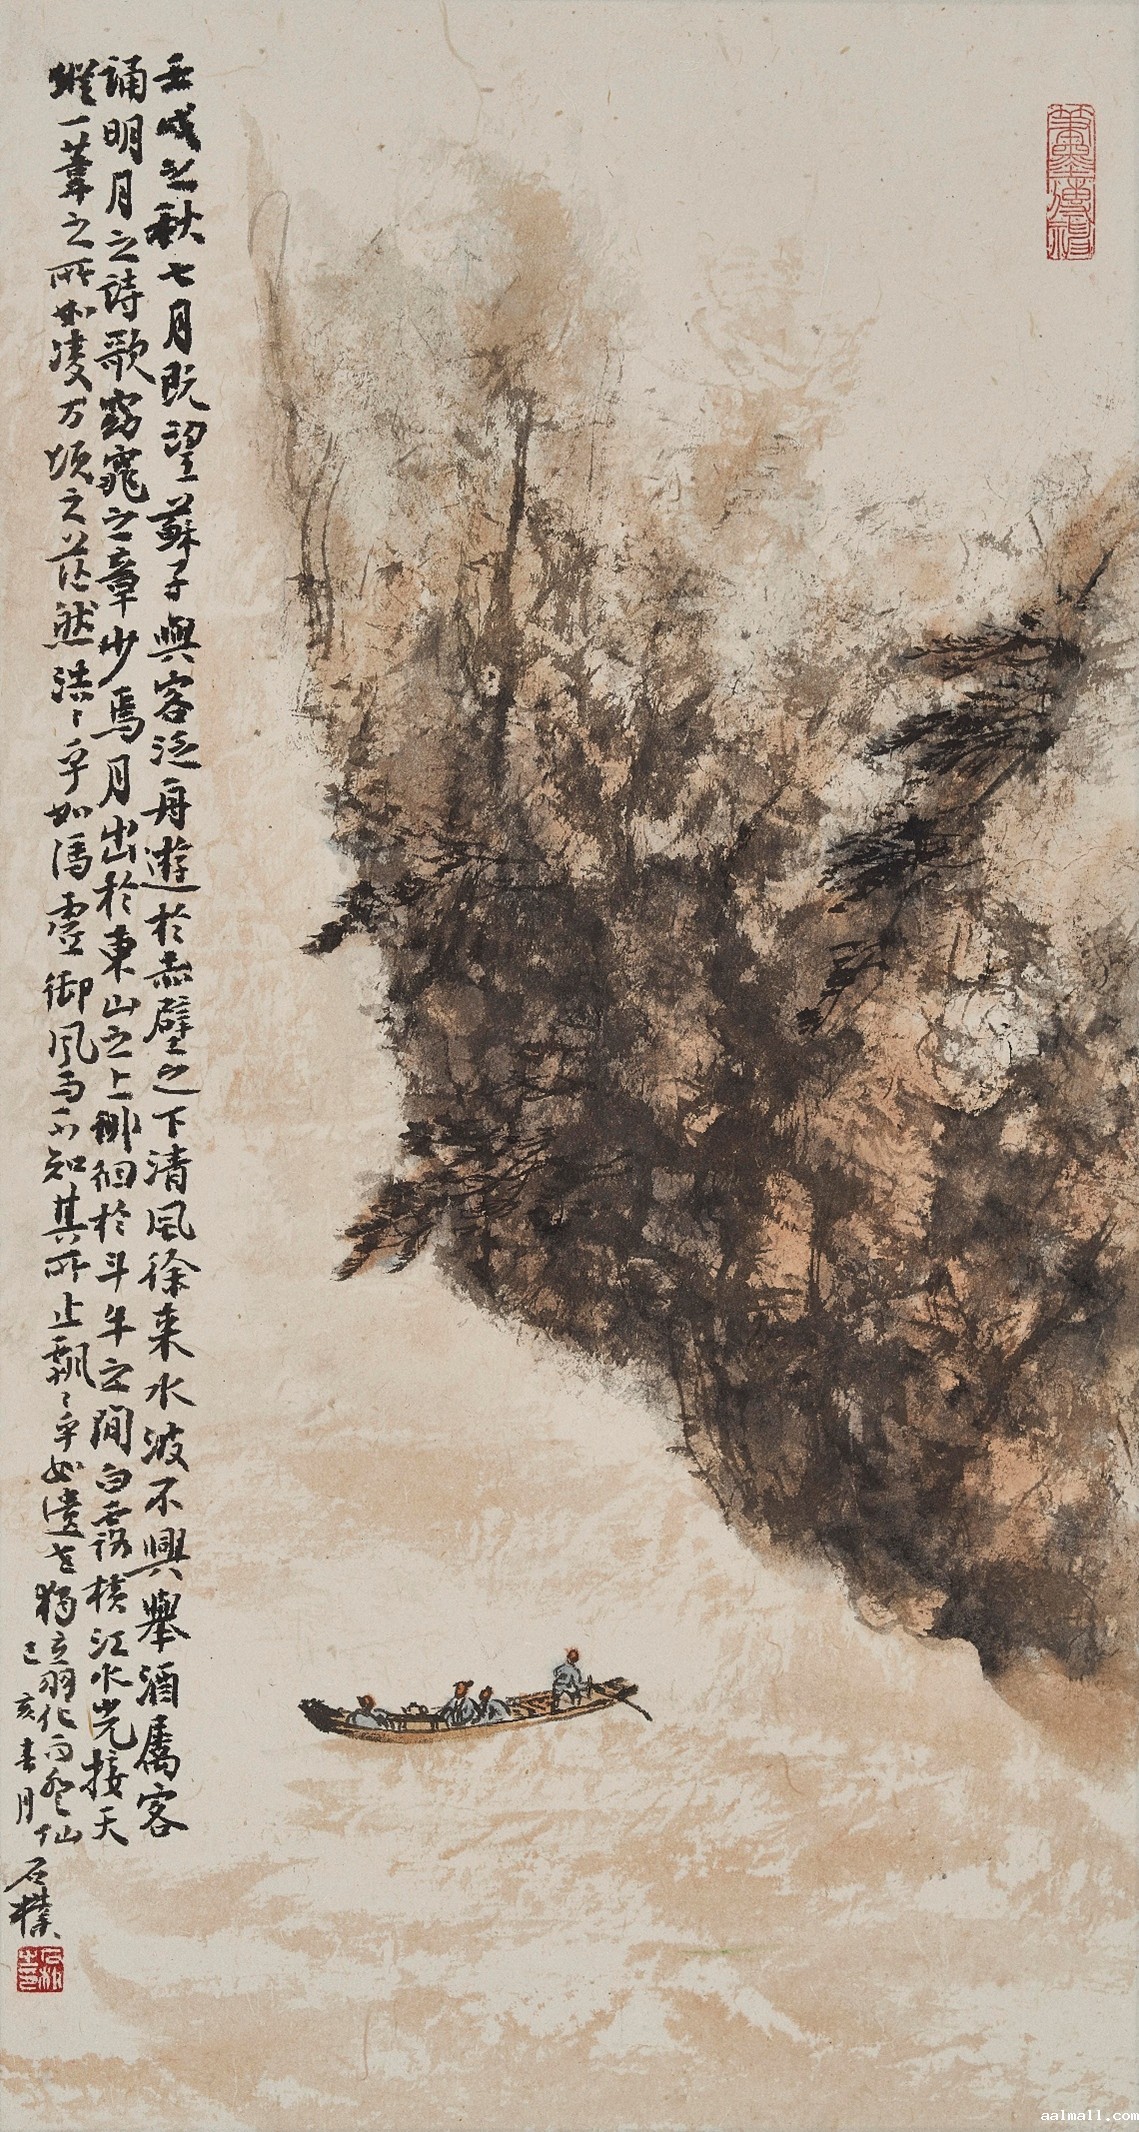 壬戌之秋七月既望蘇子與客泛舟遊於赤壁之下清風徐来水波不興舉酒屬客
誦明月之詩歌窈窕之章少焉月出於東山之上徘徊於斗牛之間白露橫江水光接天
縱一葦之所如凌万頃之茫然浩〻乎如馮虛御風而不知其所止飄〻乎如遺世獨立羽化而登仙
己亥春月
石樸
筆墨傳神
aalmall.com